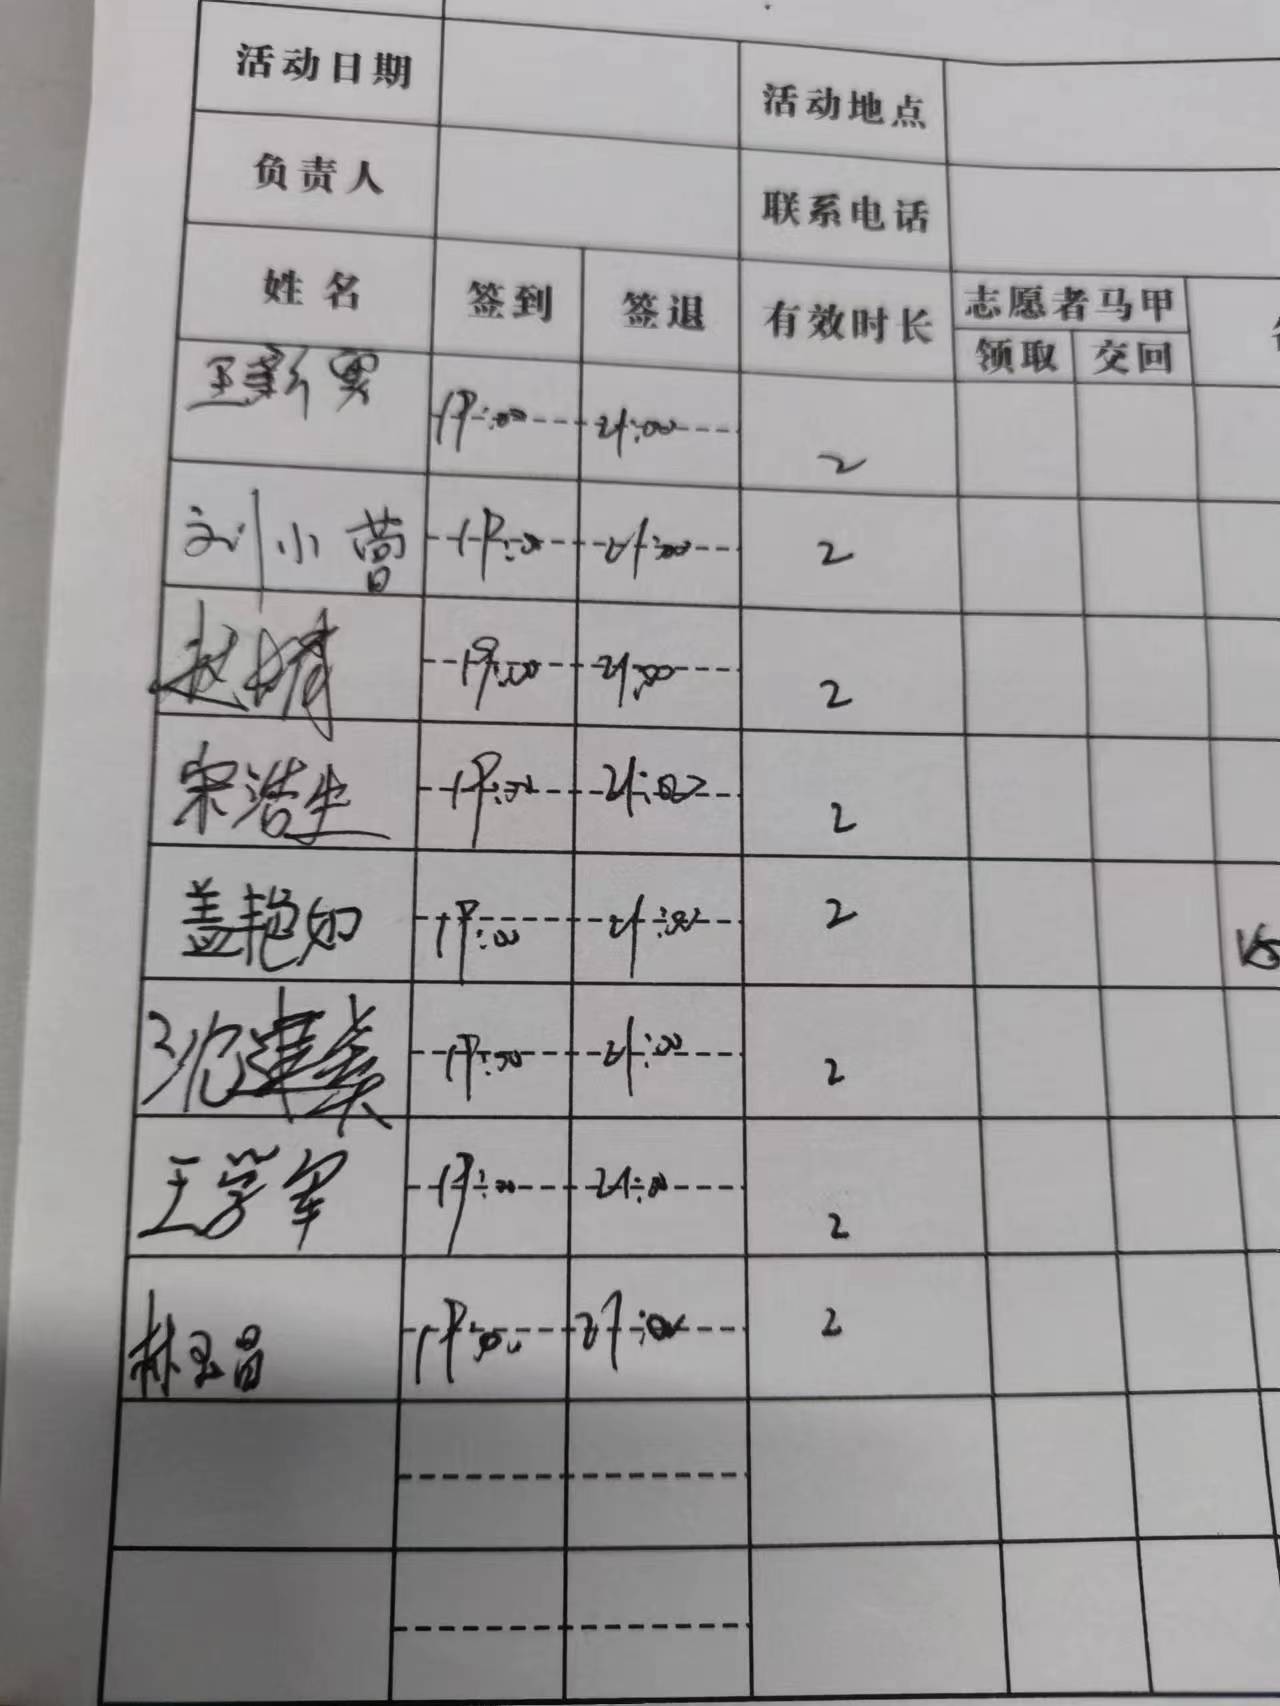 活动日期 活动地点
负责人 联系电话
姓名 签到 签退 有效时长 志愿者马甲
领取 交回
19:00 21:00 2
刘小营 19:00 21:00 2
赵婧 19:00 21:00 2
宋浩生 19:00 21:00 2
盖艳如 19:00 21:00 2
沈建美 19:00 21:00 2
王学军 19:00 21:00 2
林玉昌 19:00 21:00 2